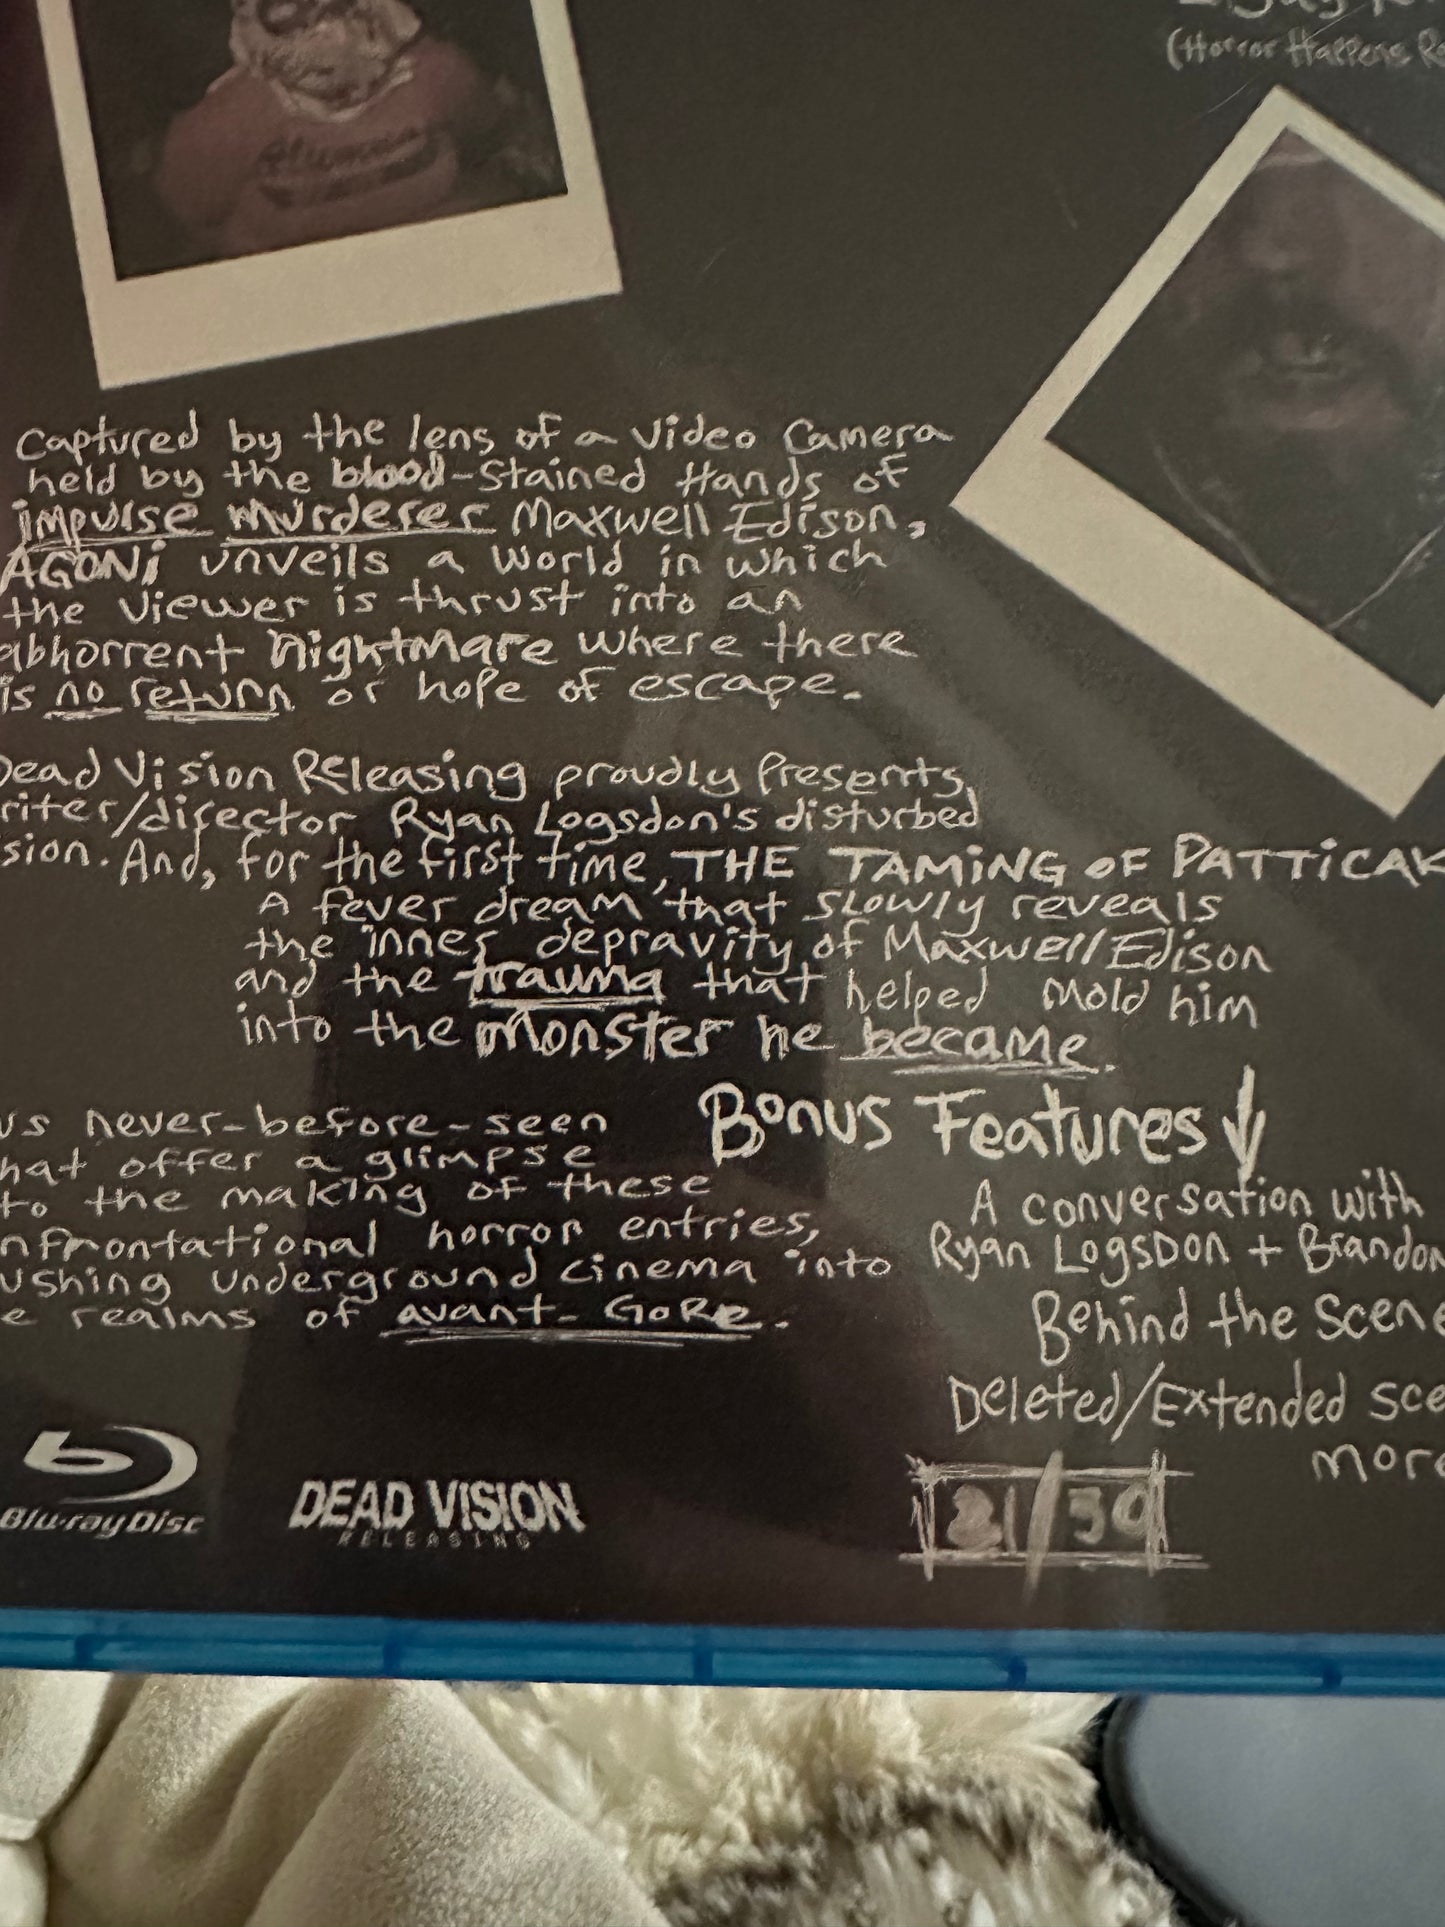 (Horror Happens
Captured by the lens of a video Camera
held by the blood-stained Hands of
impulse murderer Maxwell Edison,
AGONi unveils a world in which
the viewer is thrust into an
abhorrent nightmare where there
is no return or hope of escape.
Dead Vision Releasing proudly Presents,
riter/director Ryan Logsdon's disturbed
sion. And, for the first time, THE TAMiNG OF PATTiCAK
A fever dream that slowly reveals
the inner depravity of Maxwell Edison
and the trauma that helped mold him
into the monster he became.
us never-before-seen
hat offer a glimpse
to the making of these
nfrontational horror entries,
ushing underground cinema into
e realms of avant-GoRe.
Bonus Features
A conversation with
Ryan Logsdon + Brandon
Behind the Scene
Deleted/Extended Sce
more
Blu-ray Disc
DEAD VISION
RELEASING
21/30